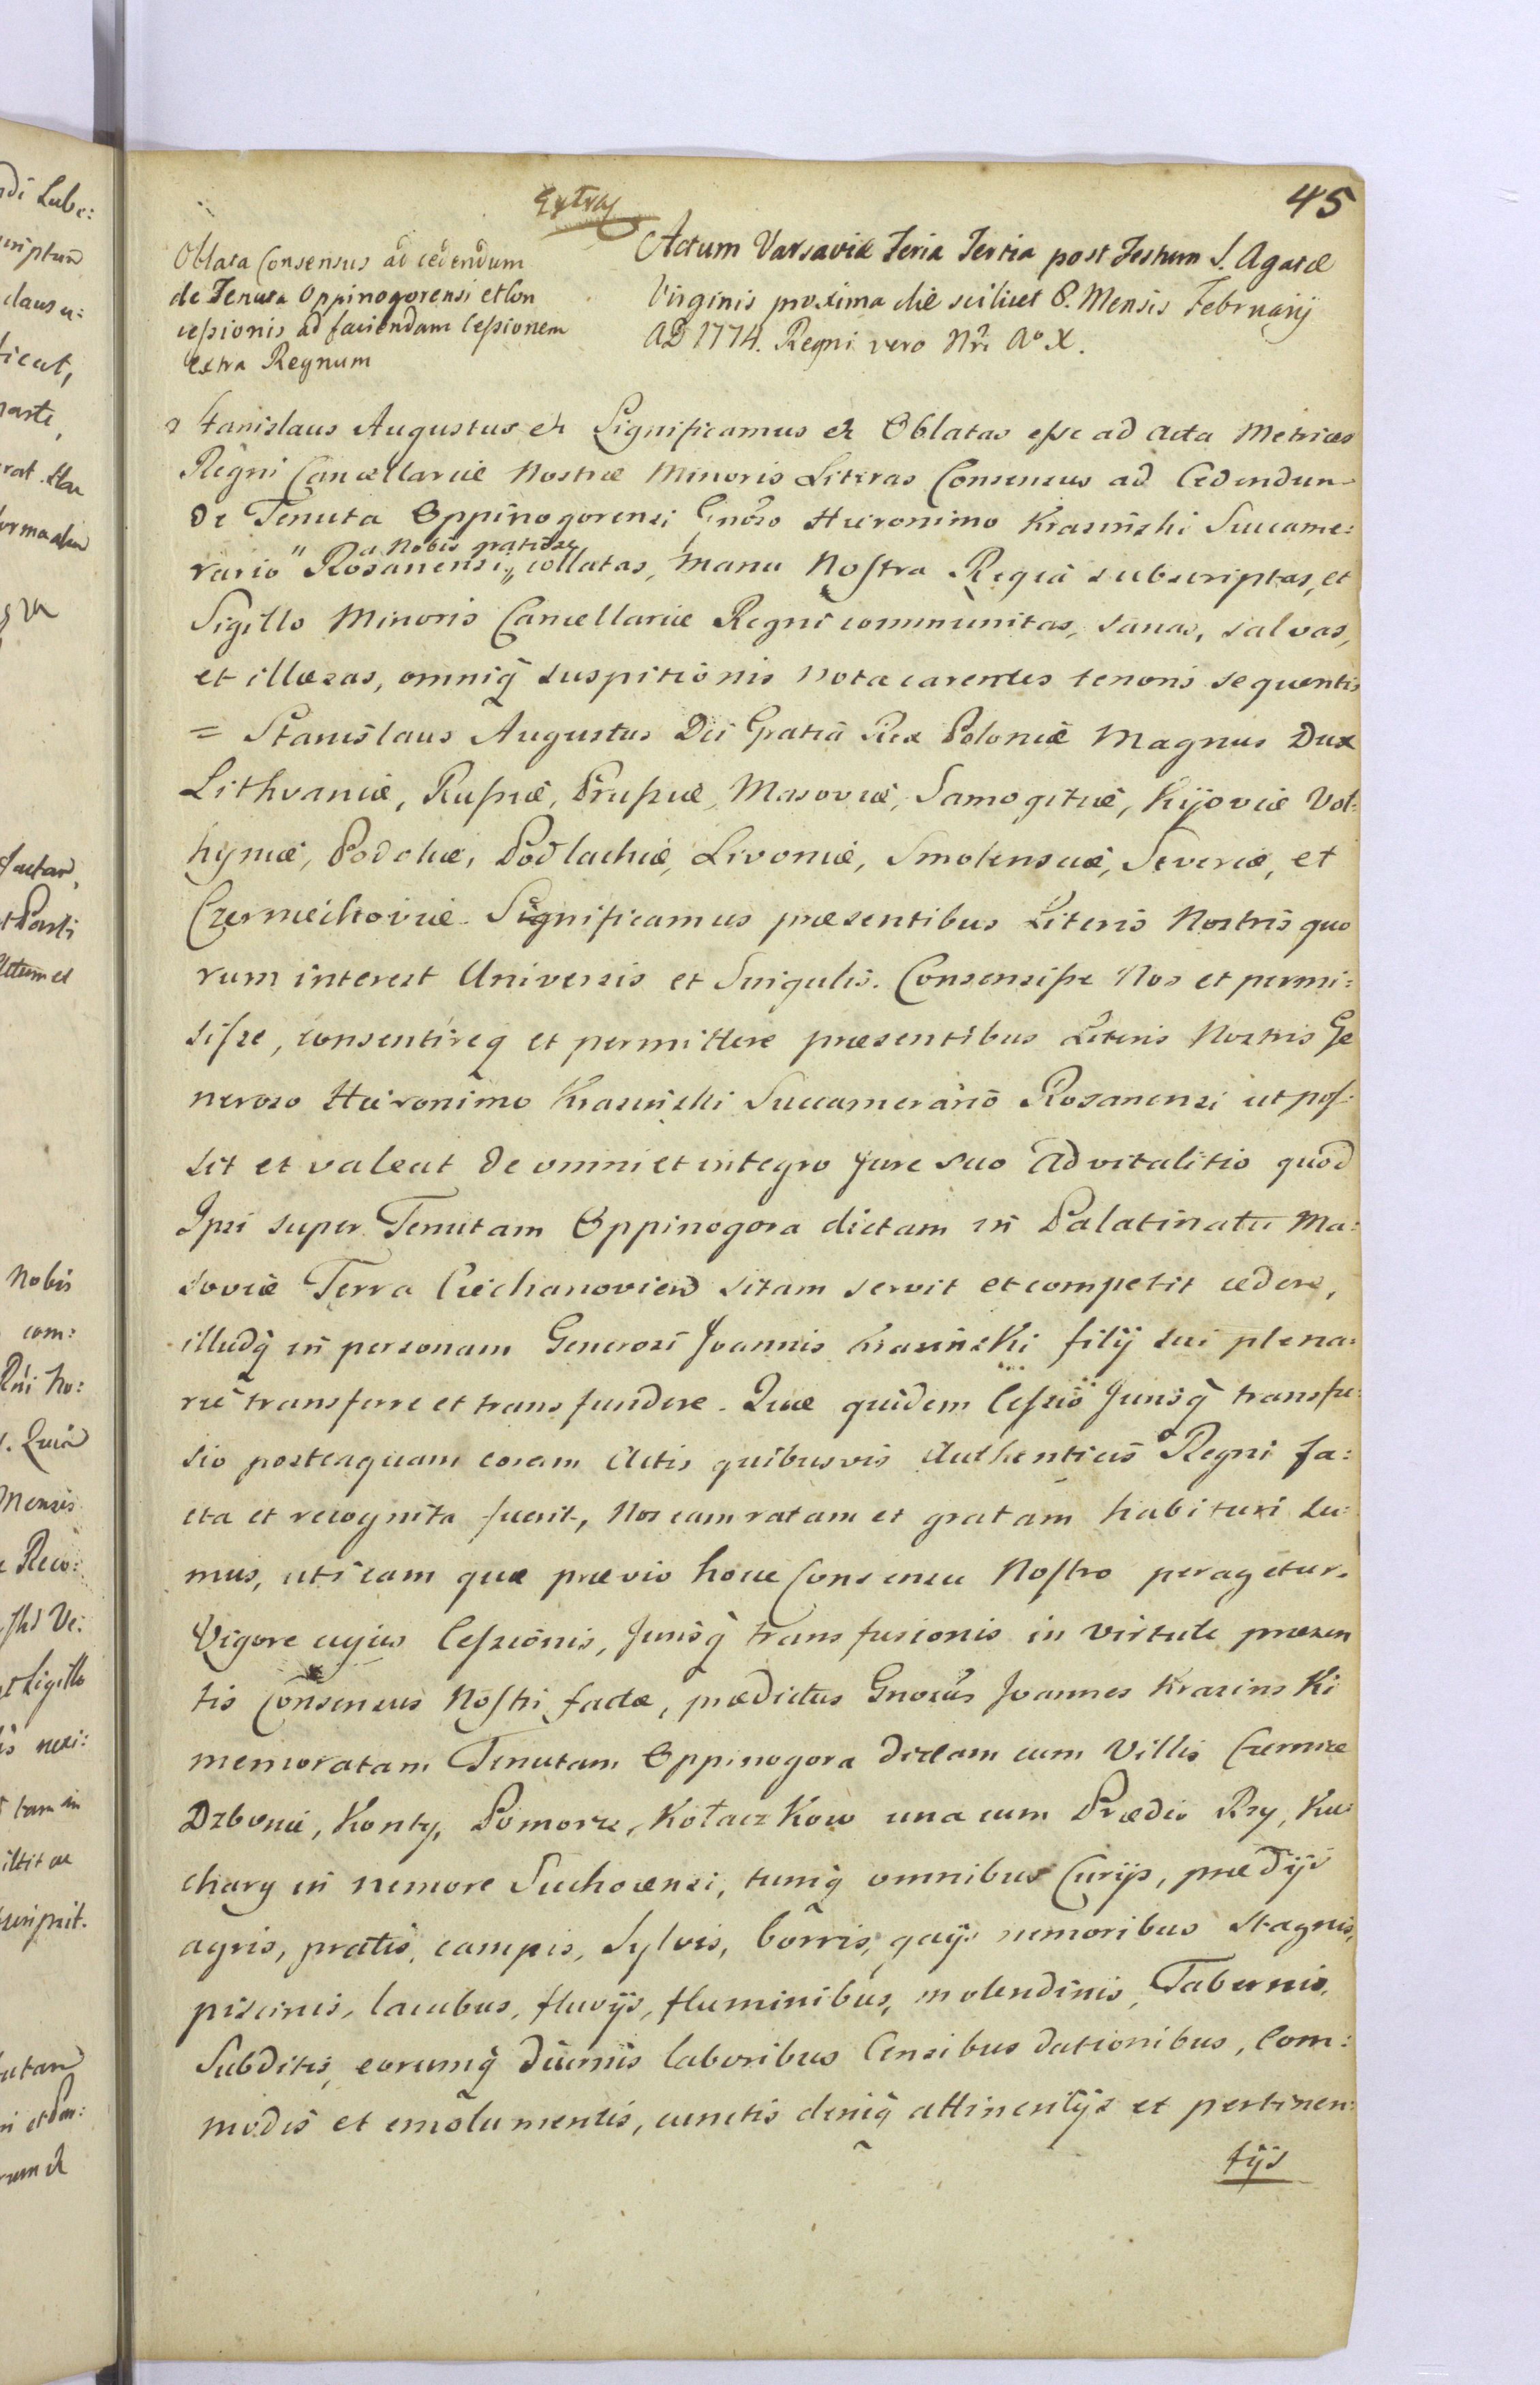 45
Extra
Oblata Consensus ad cedendum
de Tenuta Oppinogorensi et Con
cessionis ad faciendam Cessionem
extra Regnum
Actum Varsaviæ Feria Tertia post Festum S. Agatæ
Virginis proxima die scilicet 8. Mensis Februarij
AD 1774. Regni vero Nri Ao X.
Stanislaus Augustus etc Significamus etc Oblatas esse ad Acta Metrices
Regni Cancellariæ Nostræ Minoris Literas Consensus ad Cedendum
de Tenuta Oppinogorensi Gnoso Hieronimo Krasinski Succame:
rario Rosanensi a Nobis gratiose collatas, manu Nostra Regia subscriptas, et
Sigillo Minoris Cancellariæ Regni communitas, sanas, salvas,
et illæsas, omniq suspitionis nota carentes tenoris sequentis
= Stanislaus Augustus Dei Gratiâ Rex Poloniæ Magnus Dux
Lithvaniæ, Russiæ, Prussiæ, Masoviæ, Samogitiæ, Kijoviæ Vol:
hyniæ, Podoliæ, Podlachiæ, Livoniæ, Smolensciæ, Severiæ, et
Czerniechoviæ. Significamus præsentibus Literis Nostris quo
rum interest Universis et Singulis. Consensisse Nos et permi:
sisse, consentireq et permittere præsentibus Literis Nostris Ge
neroso Hieronimo Krasinski Succamerario Rosanensi ut pos:
sit et valeat de omni et integro Jure suo Advitalitio quod
Ipsi super Tenutam Oppinogora dictam in Palatinatu Ma:
soviæ Terra Ciechanovien sitam servit et competit cedere,
illudq in personam Generosi Joannis Krasinski filij sui plena:
rie transferre et transfundere. Quæ quidem Cessio Jurisq transfu:
sio posteaquam coram Actis quibusvis Authenticis Regni fa:
cta et recognita fuerit, Nos eam ratam et gratam habituri su:
mus, uti eam quæ prævio hocce Consensu Nostro peragetur.
Vigore cujus Cessionis, Jurisq transfusionis in virtute præsen
tis Consensus Nostri factæ, prædictus Gnosus Joannes Krasinski
memoratam Tenutam Oppinogora dictam cum Villis Czernice
Dzbonie, Konty, Pomorze, Kołaczkow una cum Prædio Rzy, Ku:
chary in nemore Suchocensi, tumq omnibus Curijs, prædijs
agris, pratis, campis, Sylvis, borris, gaijs nemoribus stagnis,
piscinis, lacubus, fluvijs, fluminibus, molendinis, Tabernis,
Subditis, eorumq diurnis laboribus Censibus dationibus, Com:
modis et emolumentis, cunctis deniq attinentijs et pertinen:
tijs